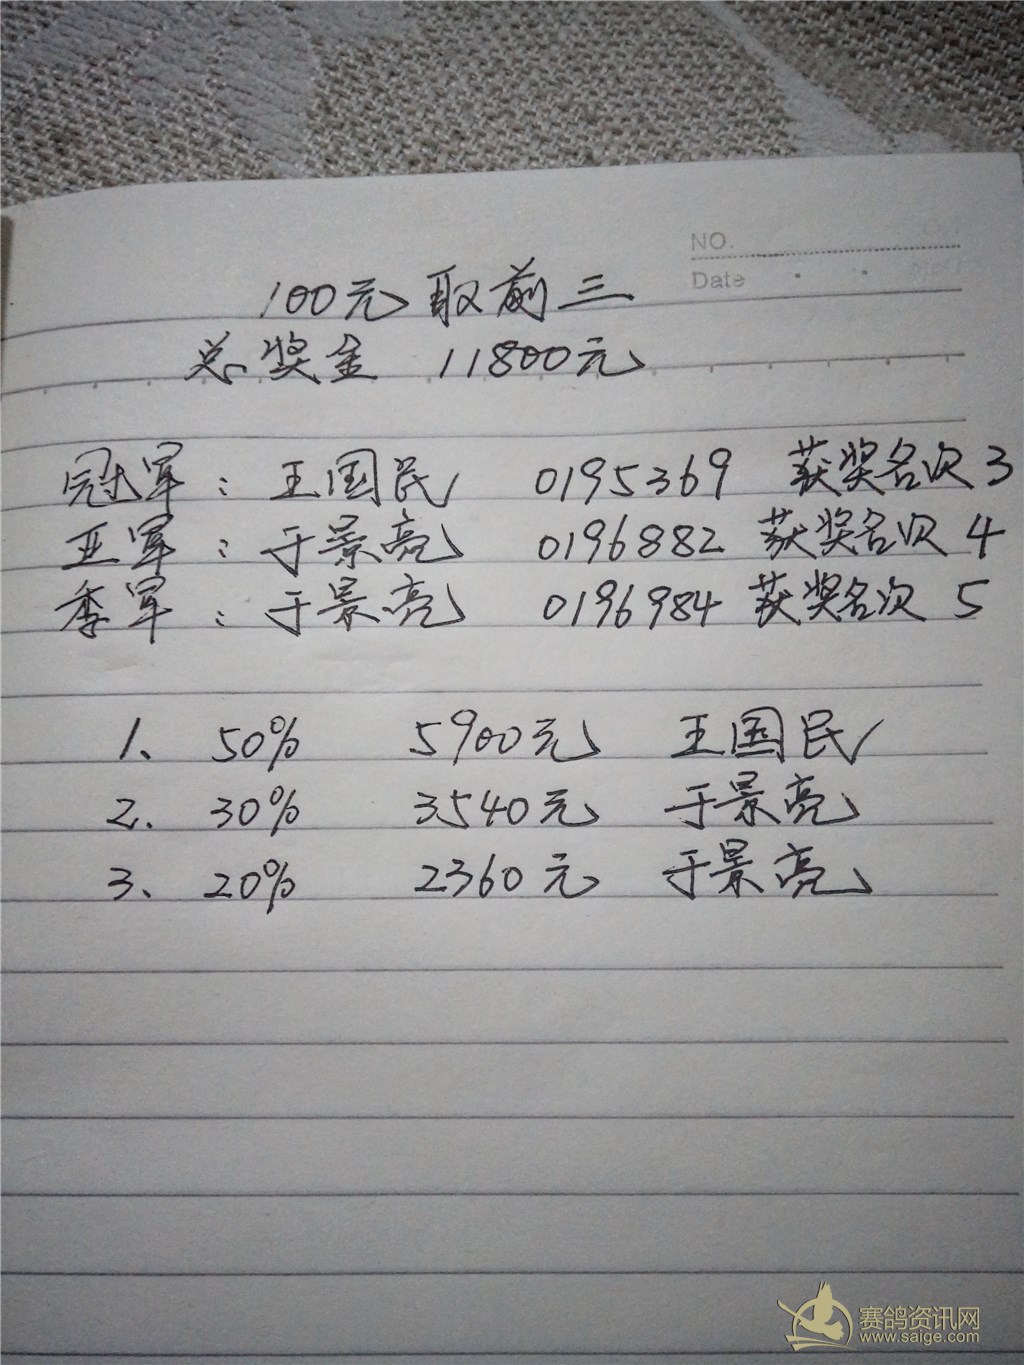 NO.
Date
100元取前三
总奖金 11800元
冠军：王国民 0195369 获奖名次3
亚军：于景亮 0196882 获奖名次4
季军：于景亮 0196984 获奖名次5
1、 50% 5900元 王国民
2、 30% 3540元 于景亮
3、 20% 2360元 于景亮
赛鸽资讯网
www.saige.com